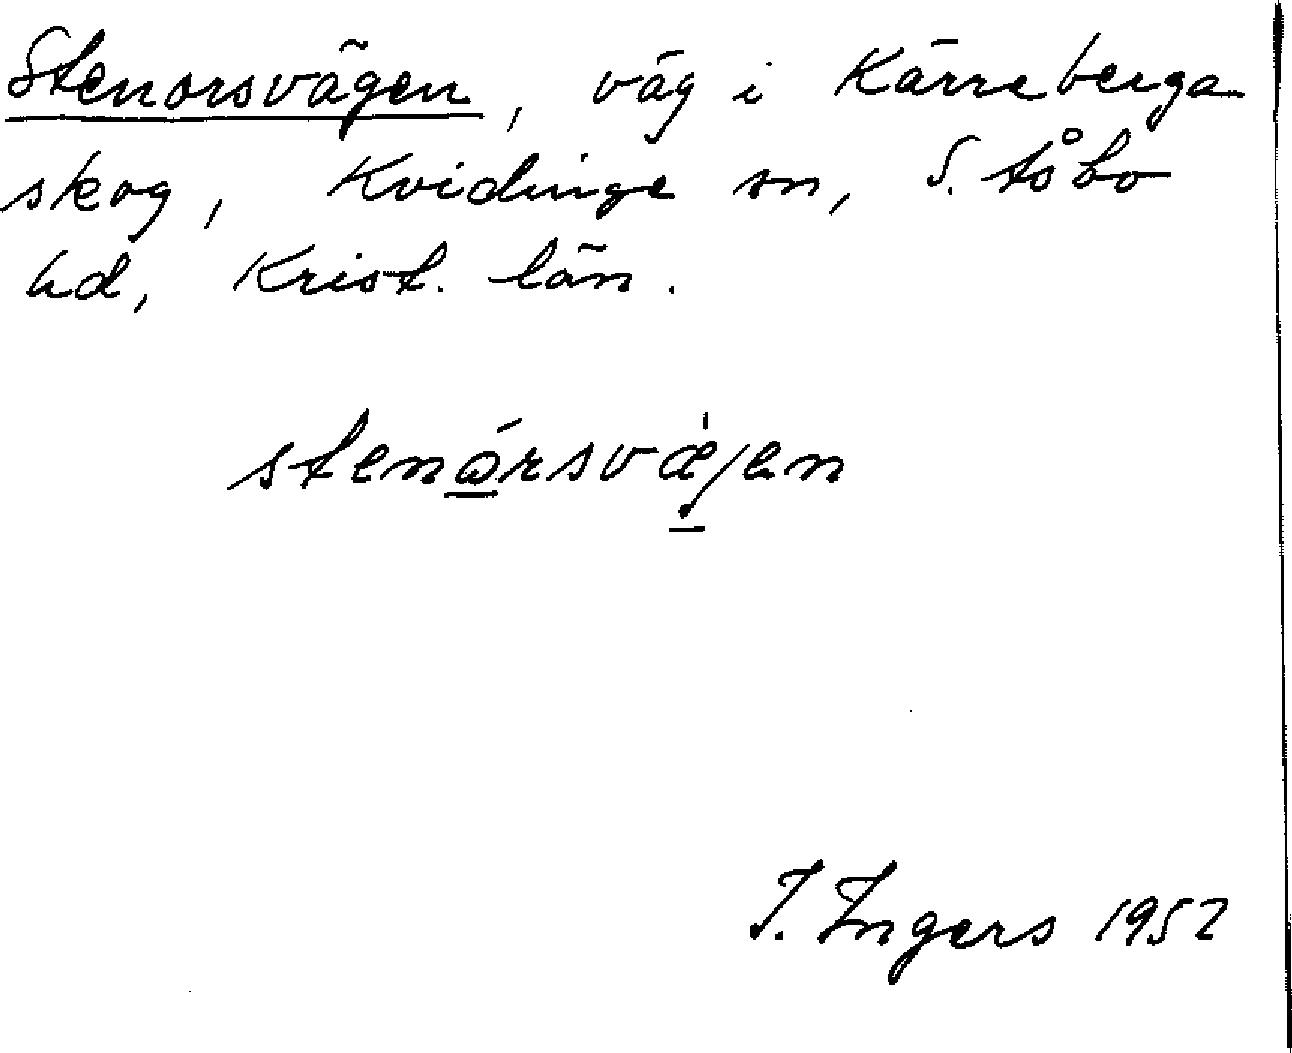 Stenorsvägen, väg i Kärreberga
skog, Kvidinge sn, S. Åsbo
hd, Krist. län.
stenórsvæ̀jen
I. Ingers 1952